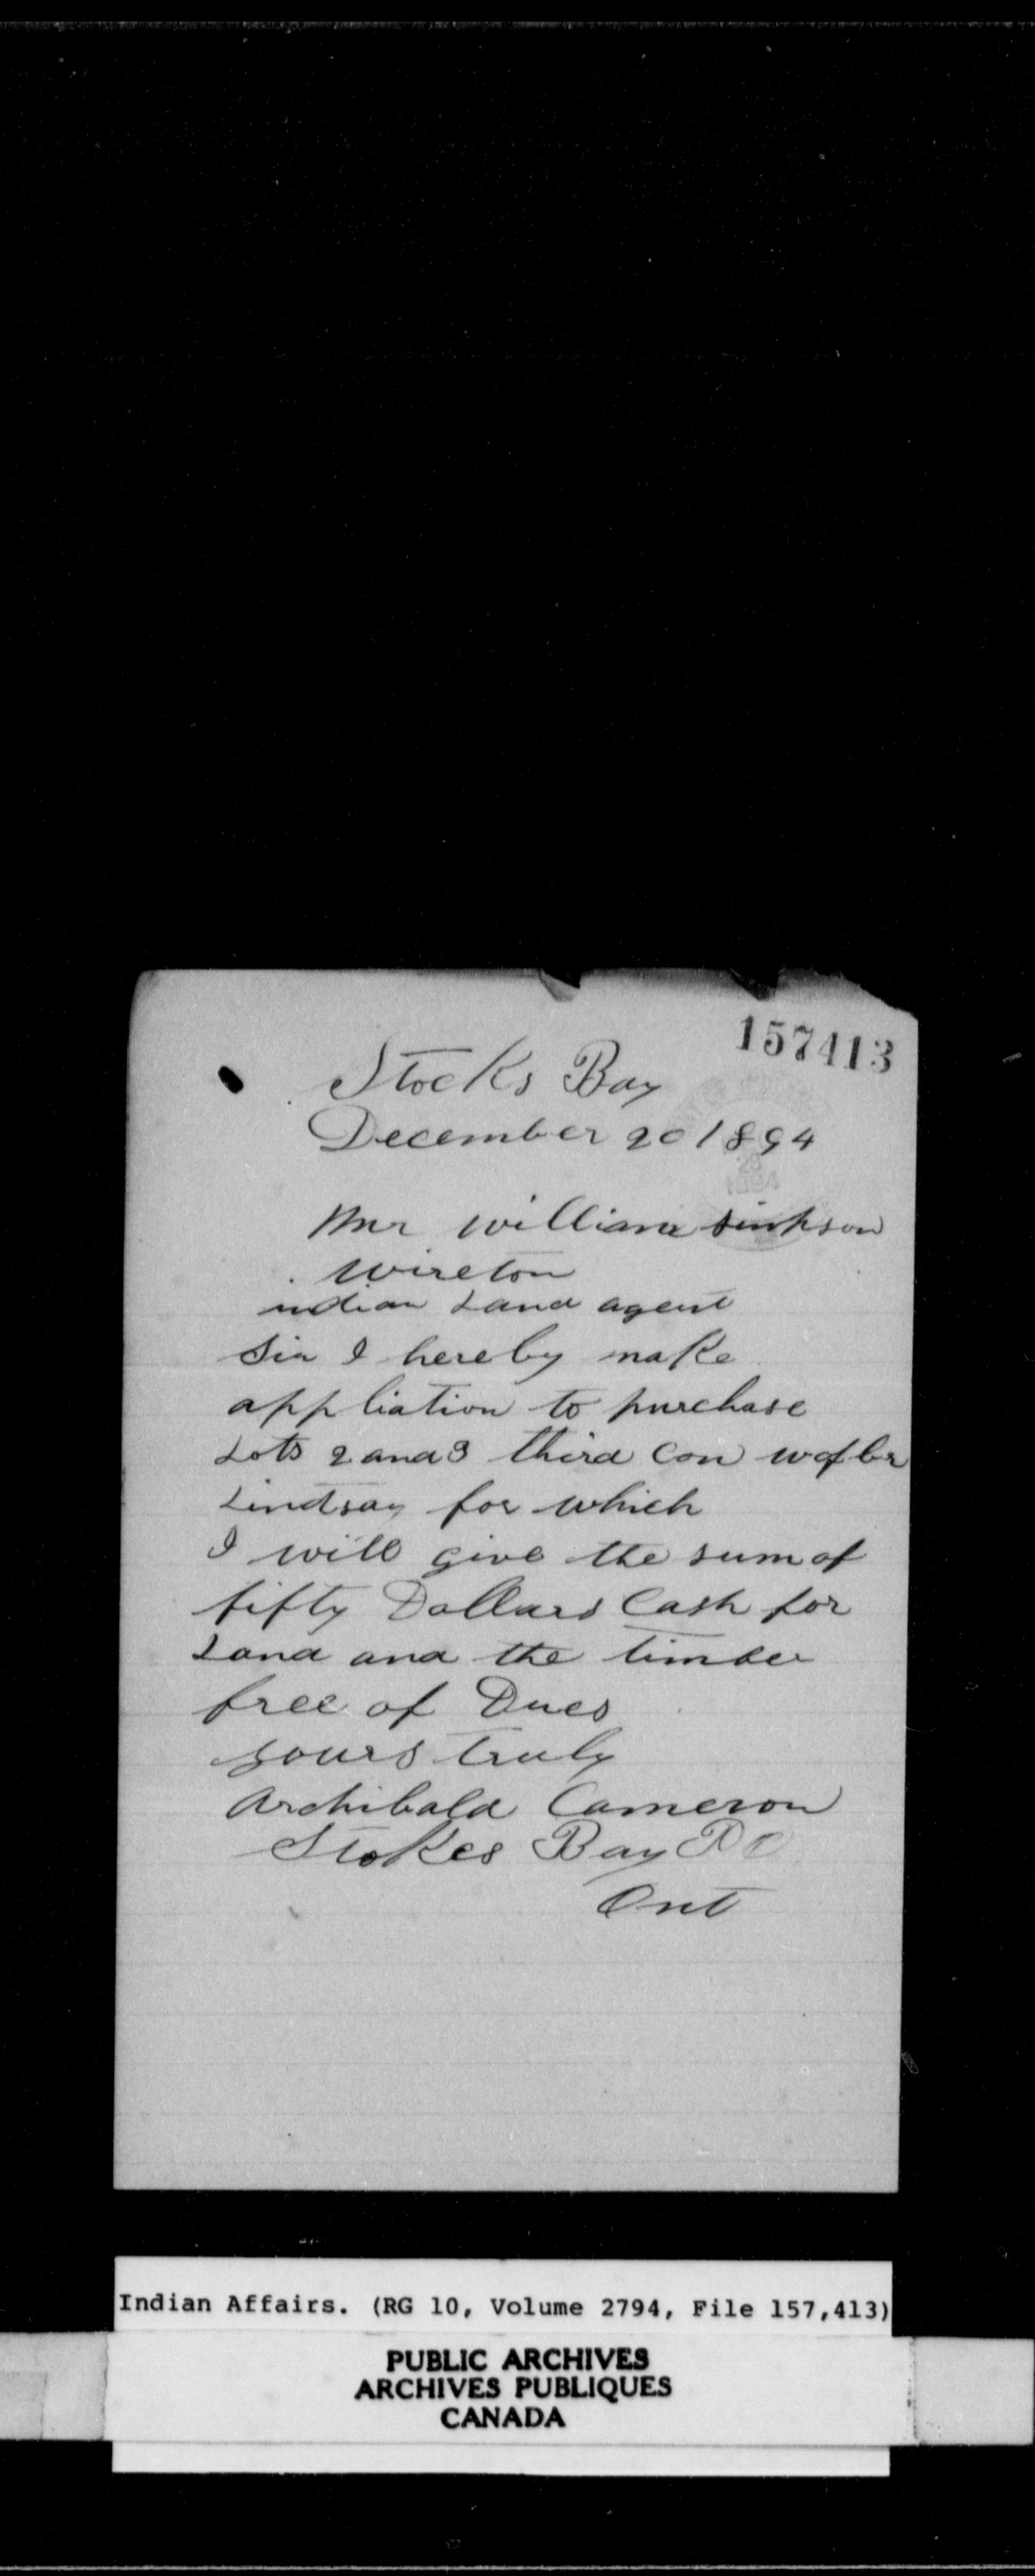 157413
Stocks Bay
December 20 1894
Mr William Simpson
Wireton
indian Land agent
Sir I hereby make
appliation to purchase
Lots 2 and 3 third Con W of br
Lindsay for which
I will give the sum of
fifty Dollars Cash for
Land and the timber
free of Dues
yours truly
Archibald Cameron
Stokes Bay PO
Ont
Indian Affairs. (RG 10, Volume 2794, File 157,413)
PUBLIC ARCHIVES
ARCHIVES PUBLIQUES
CANADA